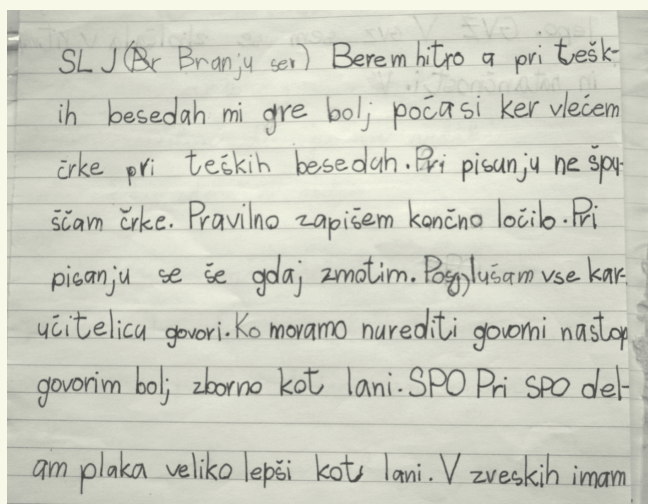 SLJ (Br Branju ser) Berem hitro a pri tešk-
ih besedah mi gre bolj počasi ker vlečem
črke pri teških besedah. Pri pisanju ne špu-
ščam črke. Pravilno zapišem končno ločilo. Pri
pisanju se še gdaj zmotim. Poslušam vse kar
učitelica govori. Ko moramo narediti govorni nastop
govorim bolj zborno kot lani. SPO Pri SPO del-
am plaka veliko lepši kot lani. V zveskih imam